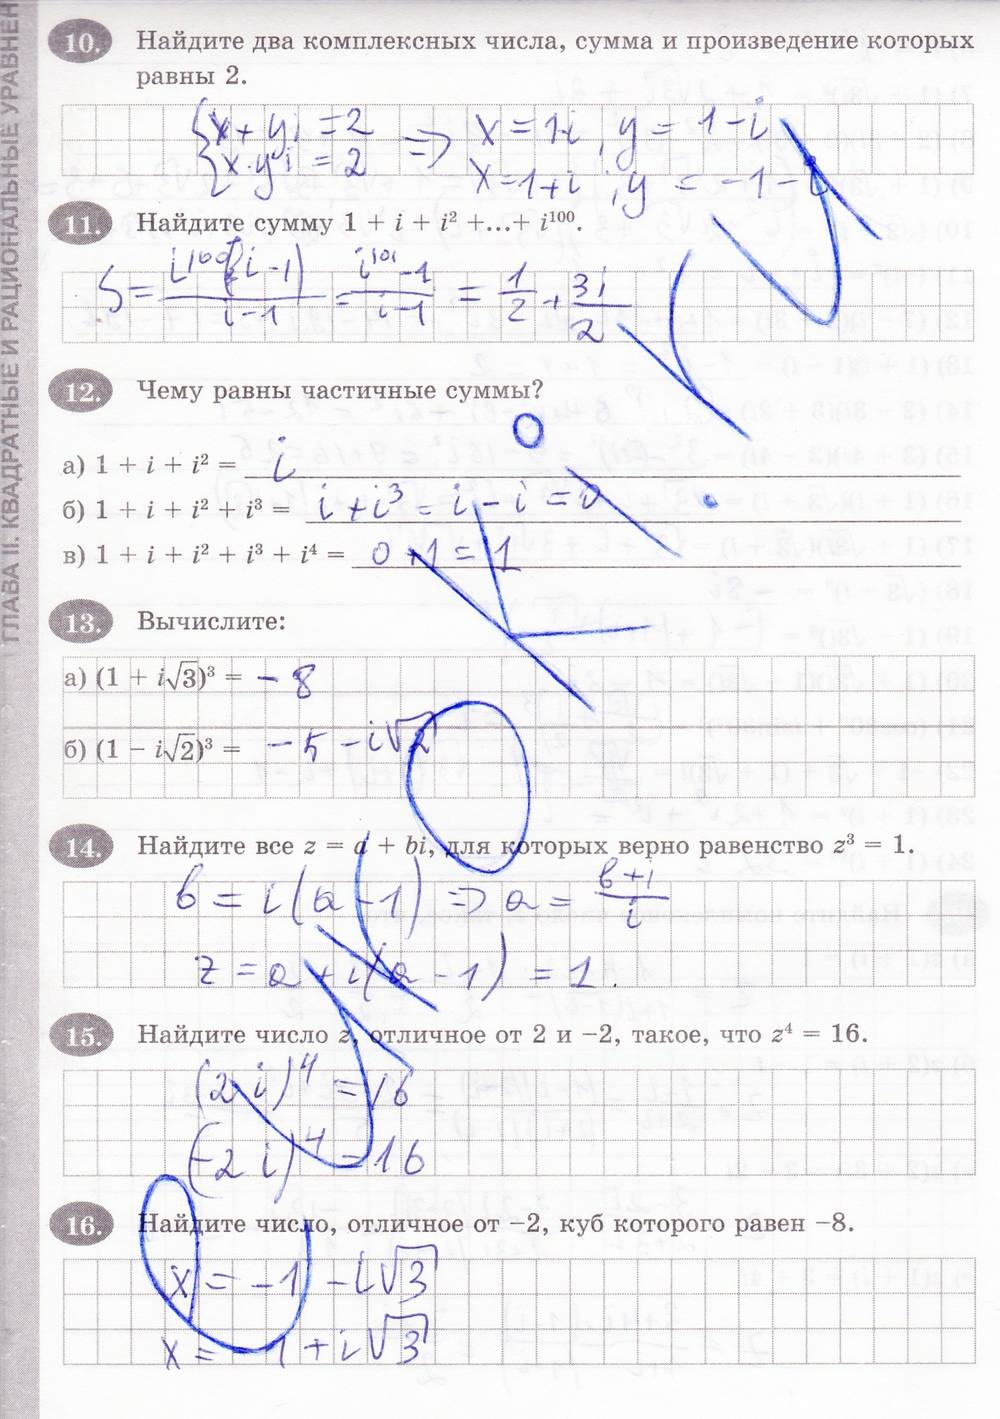 ГЛАВА II. КВАДРАТНЫЕ И РАЦИОНАЛЬНЫЕ УРАВНЕН
10. Найдите два комплексных числа, сумма и произведение которых
равны 2.
x + yi = 2 => x = 1-i, y = 1-i
x·yi = 2 x = 1+i; y = -1-i
11. Найдите сумму 1 + i + i² +...+ i¹⁰⁰.
S = i¹⁰⁰(i-1)/(i-1) = (i¹⁰¹-1)/(i-1) = 1/2 + 3i/2
12. Чему равны частичные суммы?
а) 1 + i + i² = i
б) 1 + i + i² + i³ = i + i³ = i - i = 0
в) 1 + i + i² + i³ + i⁴ = 0 + 1 = 1
13. Вычислите:
а) (1 + i√3)³ = -8
б) (1 − i√2)³ = -5 - i√2
14. Найдите все z = a + bi, для которых верно равенство z³ = 1.
b = i(a-1) => a = (b+i)/i
z = a + i(a-1) = 1.
15. Найдите число z, отличное от 2 и −2, такое, что z⁴ = 16.
(2i)⁴ = 16
(-2i)⁴ = 16
16. Найдите число, отличное от −2, куб которого равен −8.
x = -1 - i√3
x = -1 + i√3